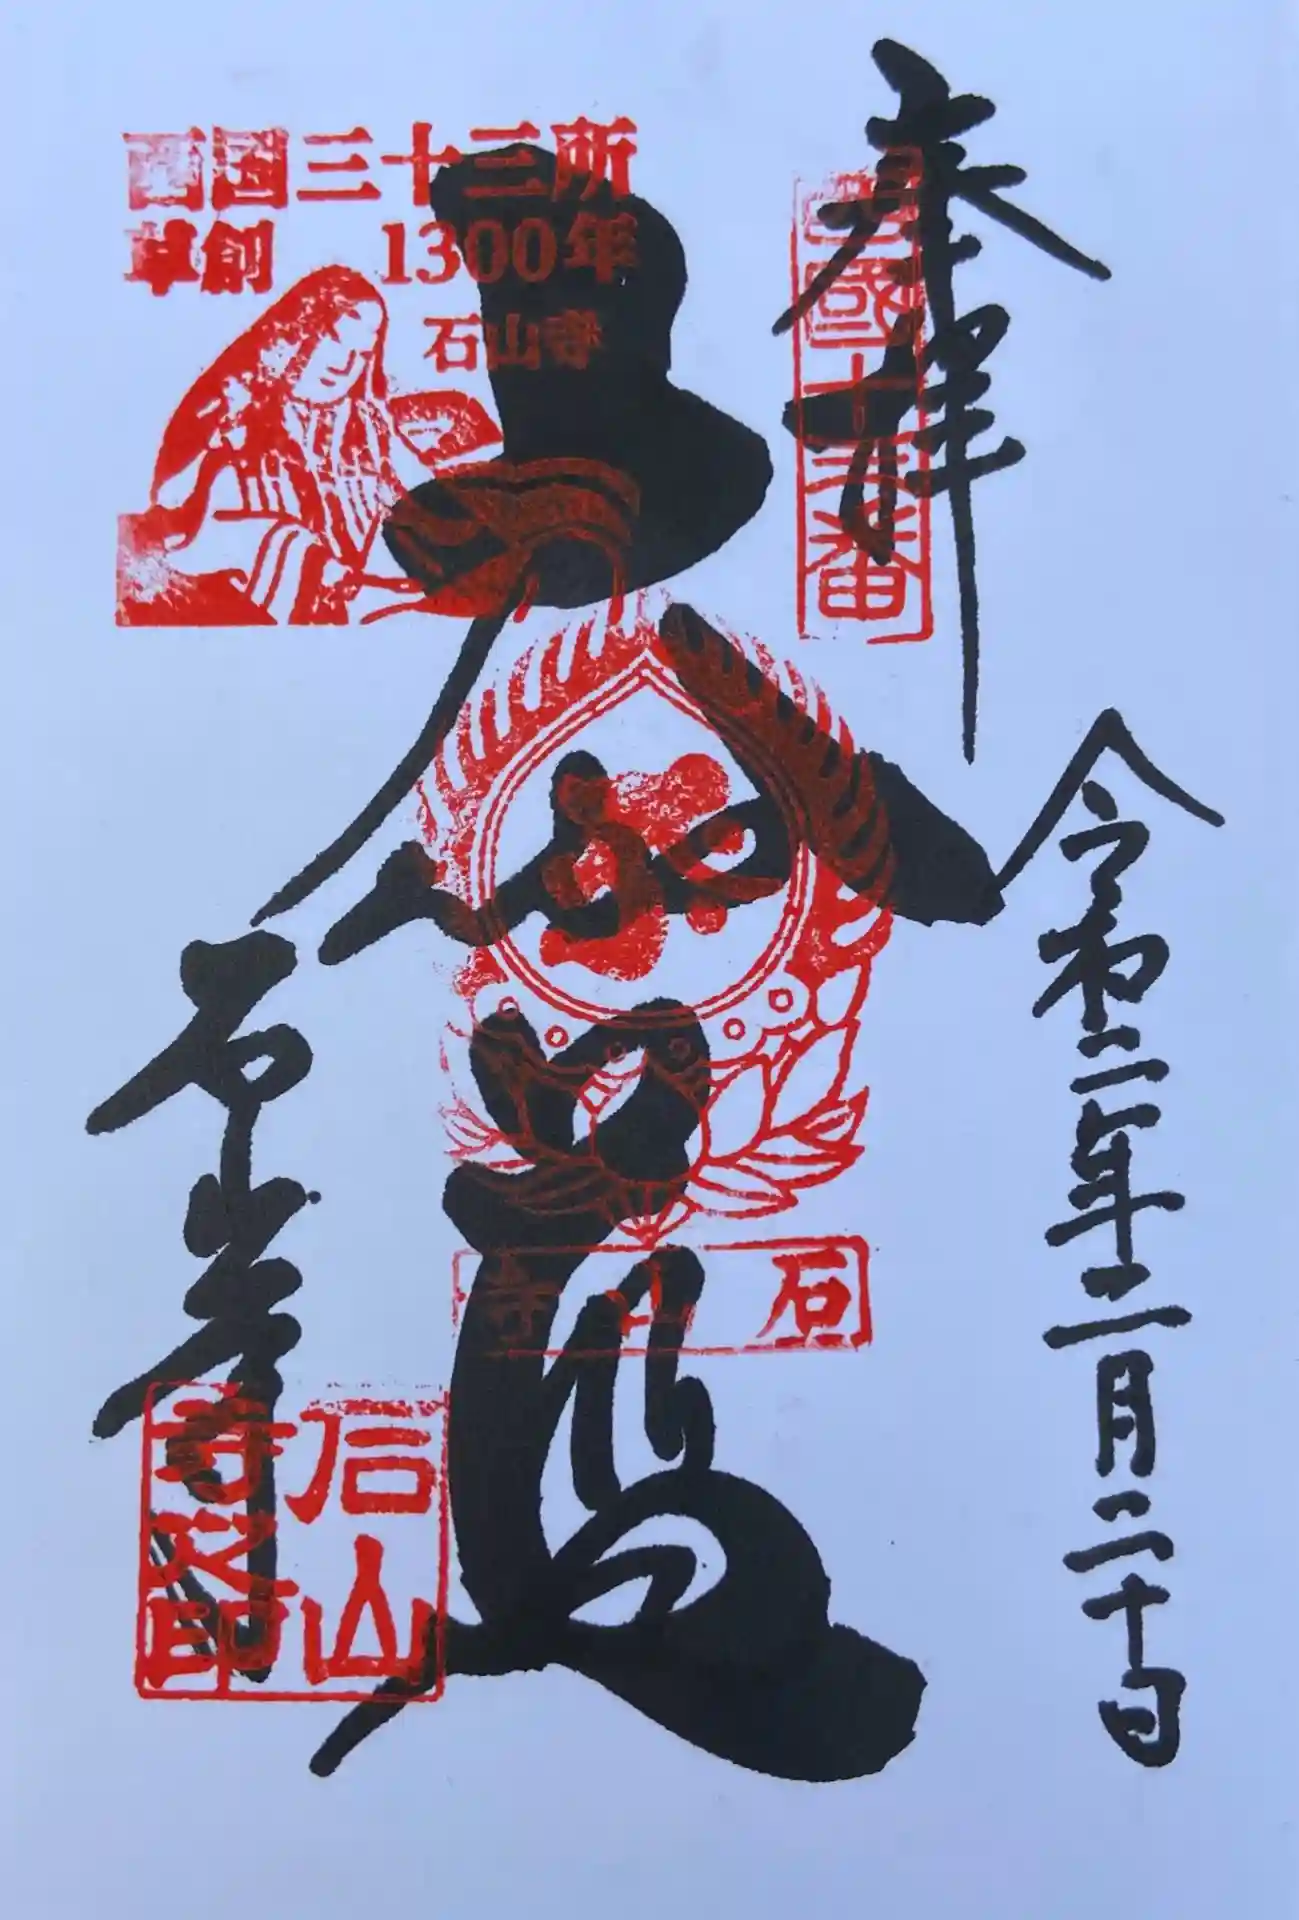 奉拝
西國十三番
令和二年二月二十日
大伽藍
石山寺
西国三十三所
草創 1300年
石山寺
石山寺
石山
寺之印